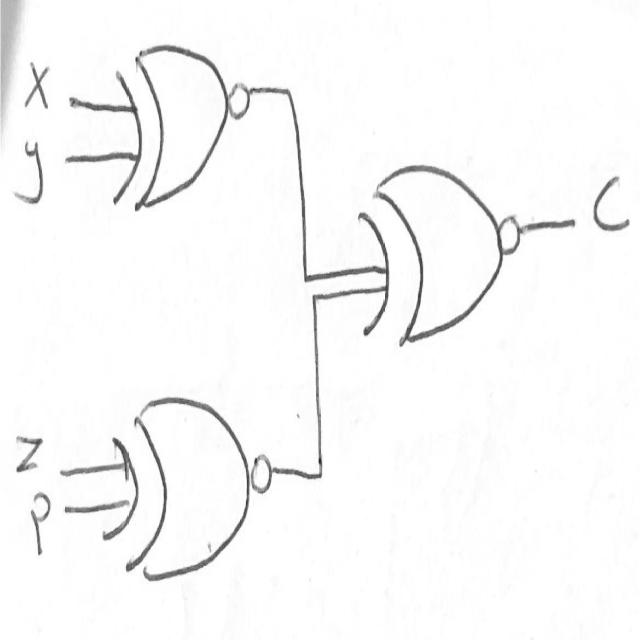 x
y
C
z
p